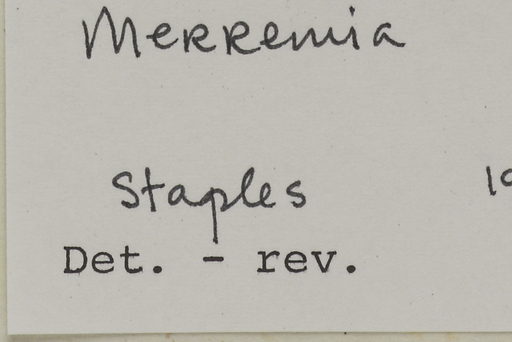 Merremia
Staples
Det. - rev.